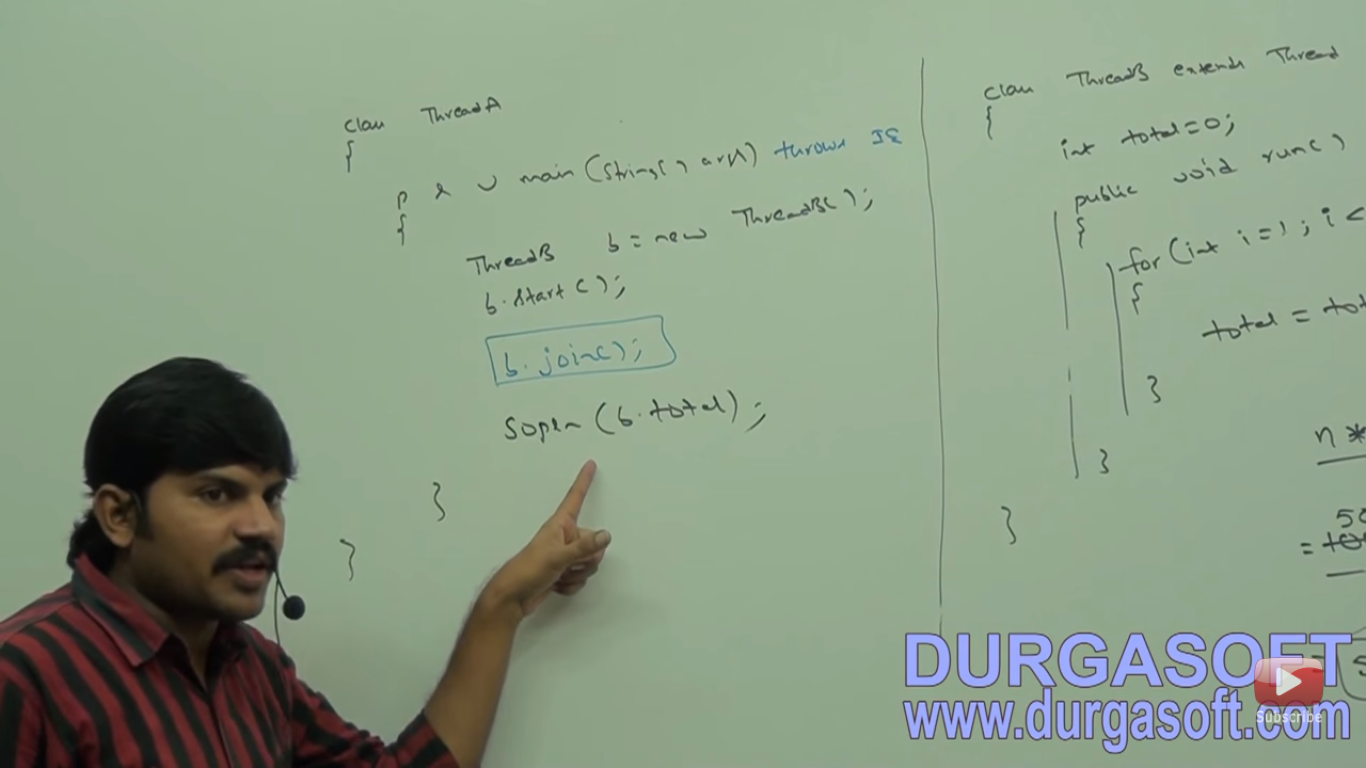 class ThreadA
{
p s v main(String[] args) throws IE
{
ThreadB b = new ThreadB();
b.start();
b.join();
Sopln (b.total);
}
}
class ThreadB extends Thread
{
int total=0;
public void run()
{
for(int i=1; i<
{
total = tot
}
}
}
n *
50
=
DURGASOFT
www.durgasoft.com
Subscribe